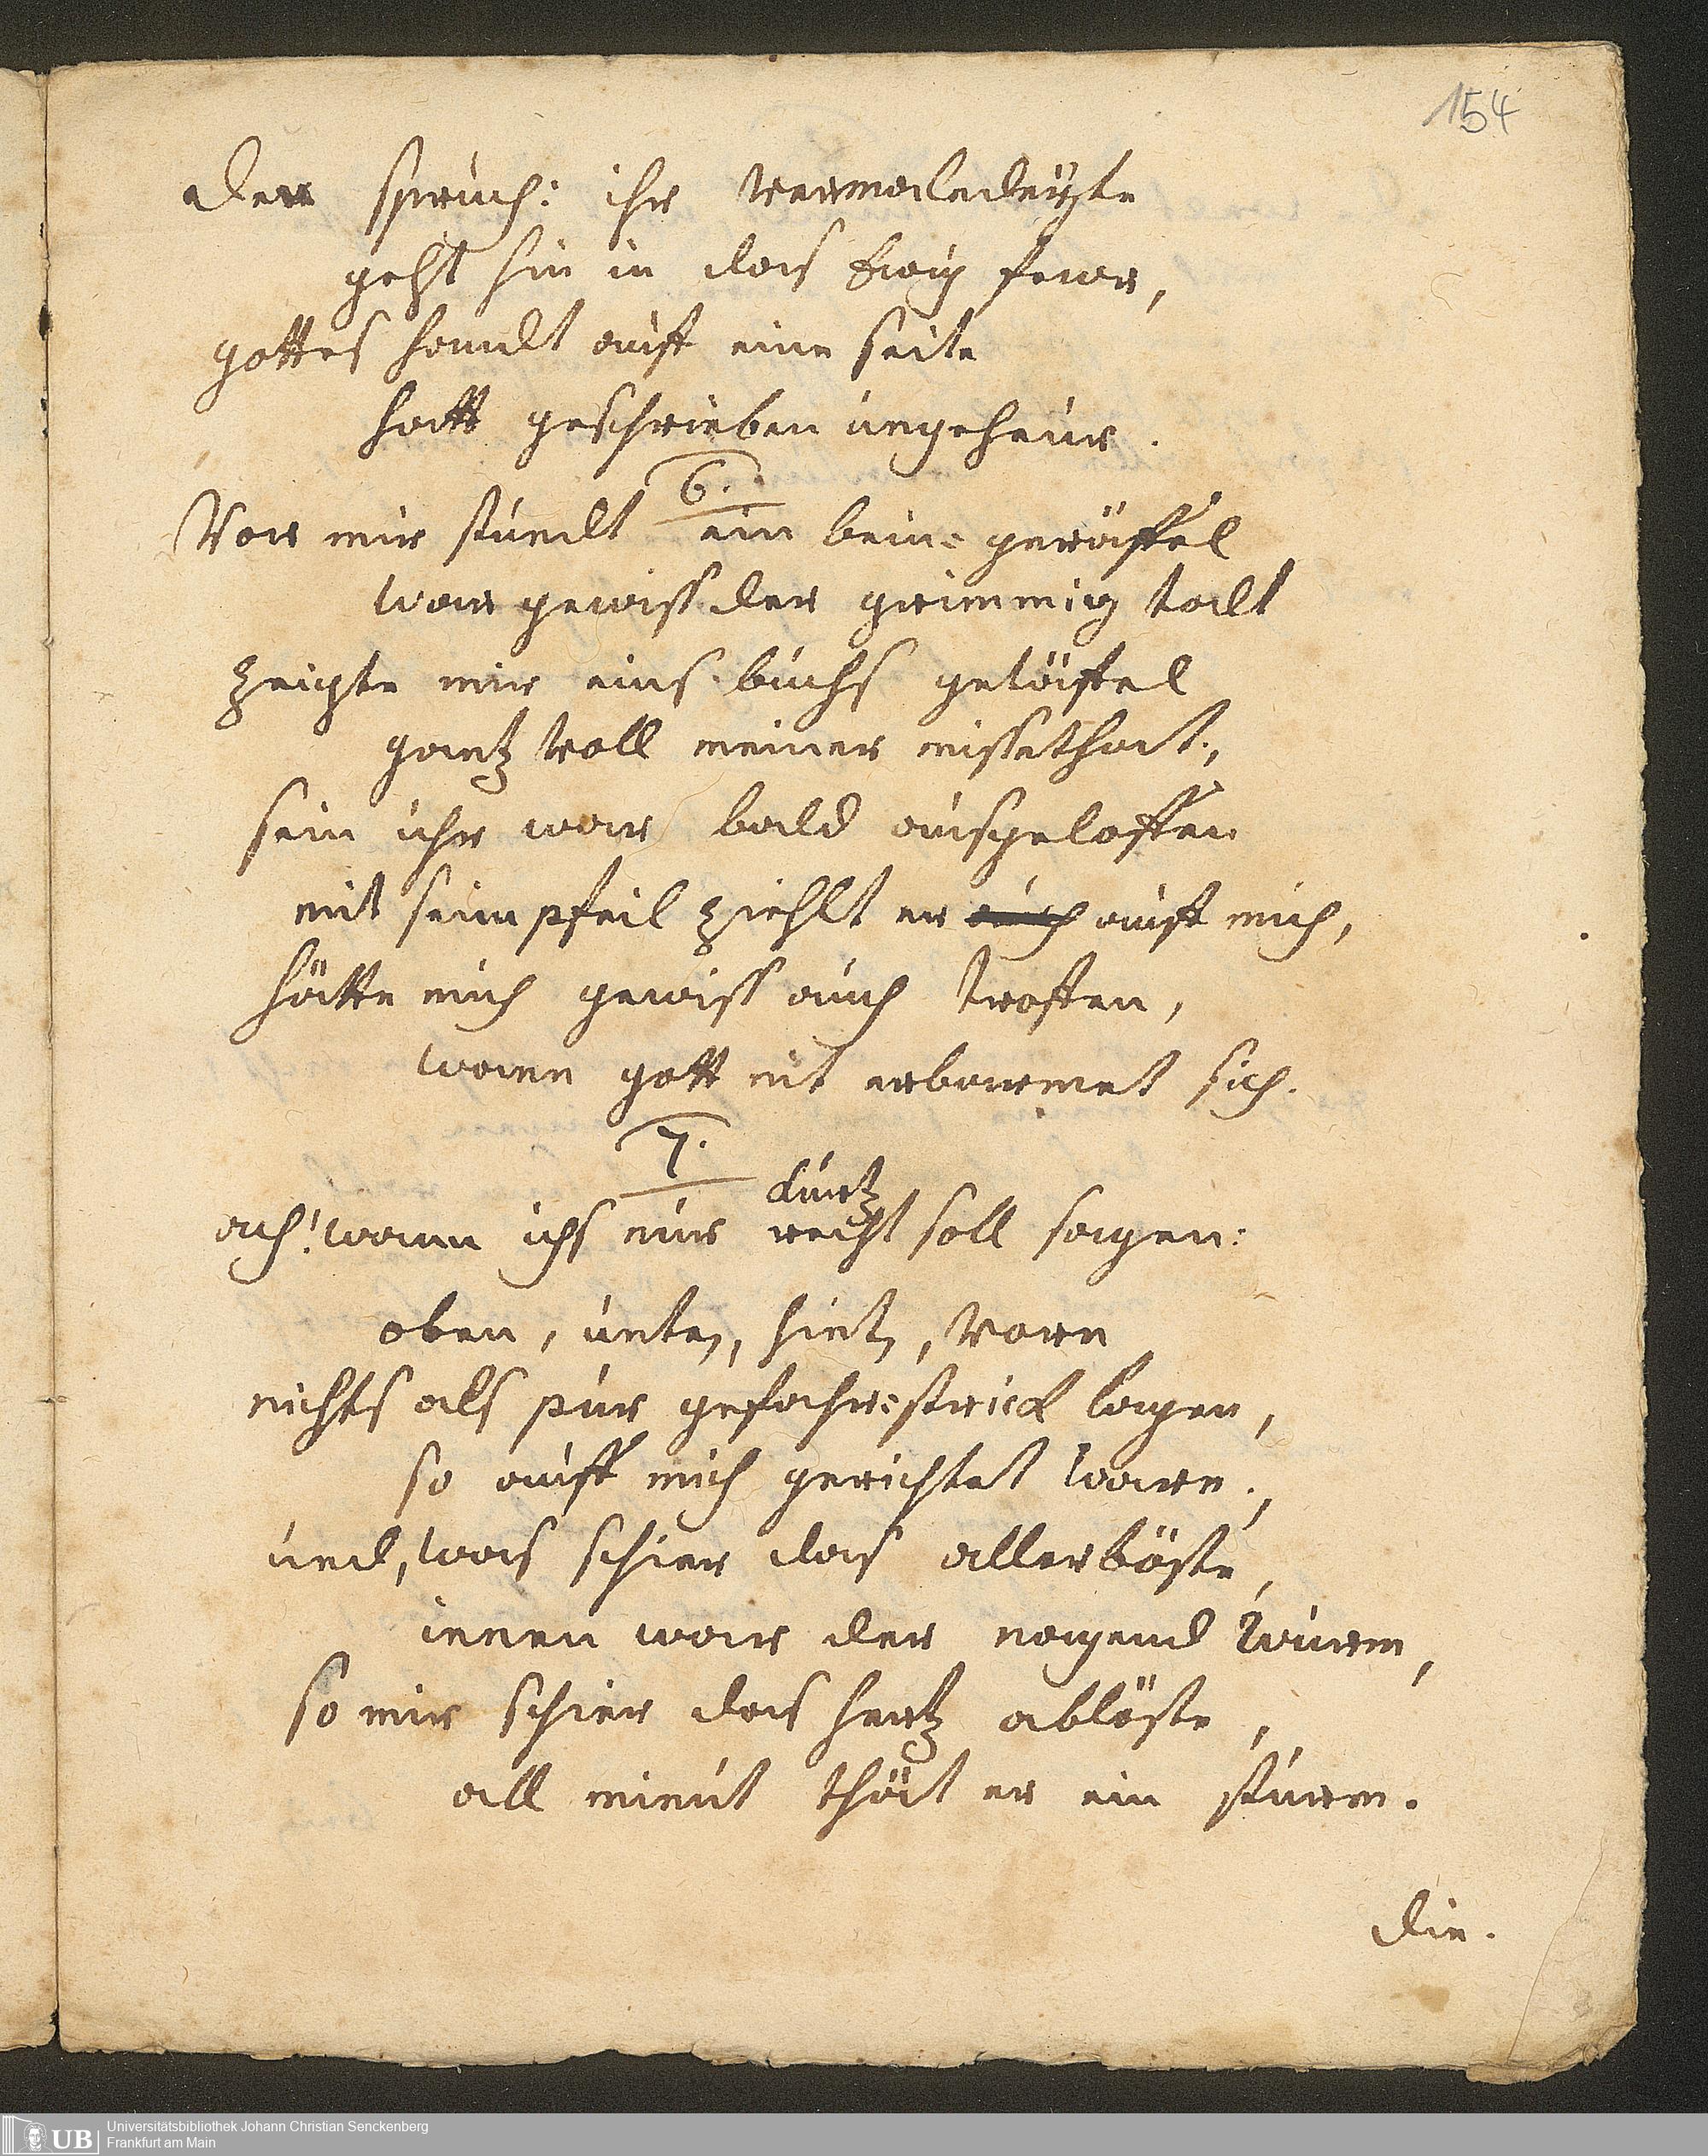 154
den spruch: ihr vermaledeyte
geht hin in das Ewig fewr,
gottes handt auff eine seite
hatt geschrieben ungeheur.
6.
Vor mir stundt ein bein= geräffel
war gewiss der grimmig todt
zeigte mir eins buchs getäffel
gantz voll meiner missethat,
sein uhr war bald ausgeloffen
mit seim pfeil ziehlt er auch auff mich,
hätte mich gewiss auch troffen,
wann gott nit erbarmet sich.
7.
kurtz
ach! wann ichs nur recht soll sagen:
oben, unten, hinten, vorn
nichts als pur gefahr=strick lagen,
so auff mich gerichtet warn,
und, was schier das allerböste,
innen war der nagend wurm,
so mir schier das hertz ablöste,
all minut thät er ein sturm.
die.
UB
Universitätsbibliothek Johann Christian Senckenberg
Frankfurt am Main